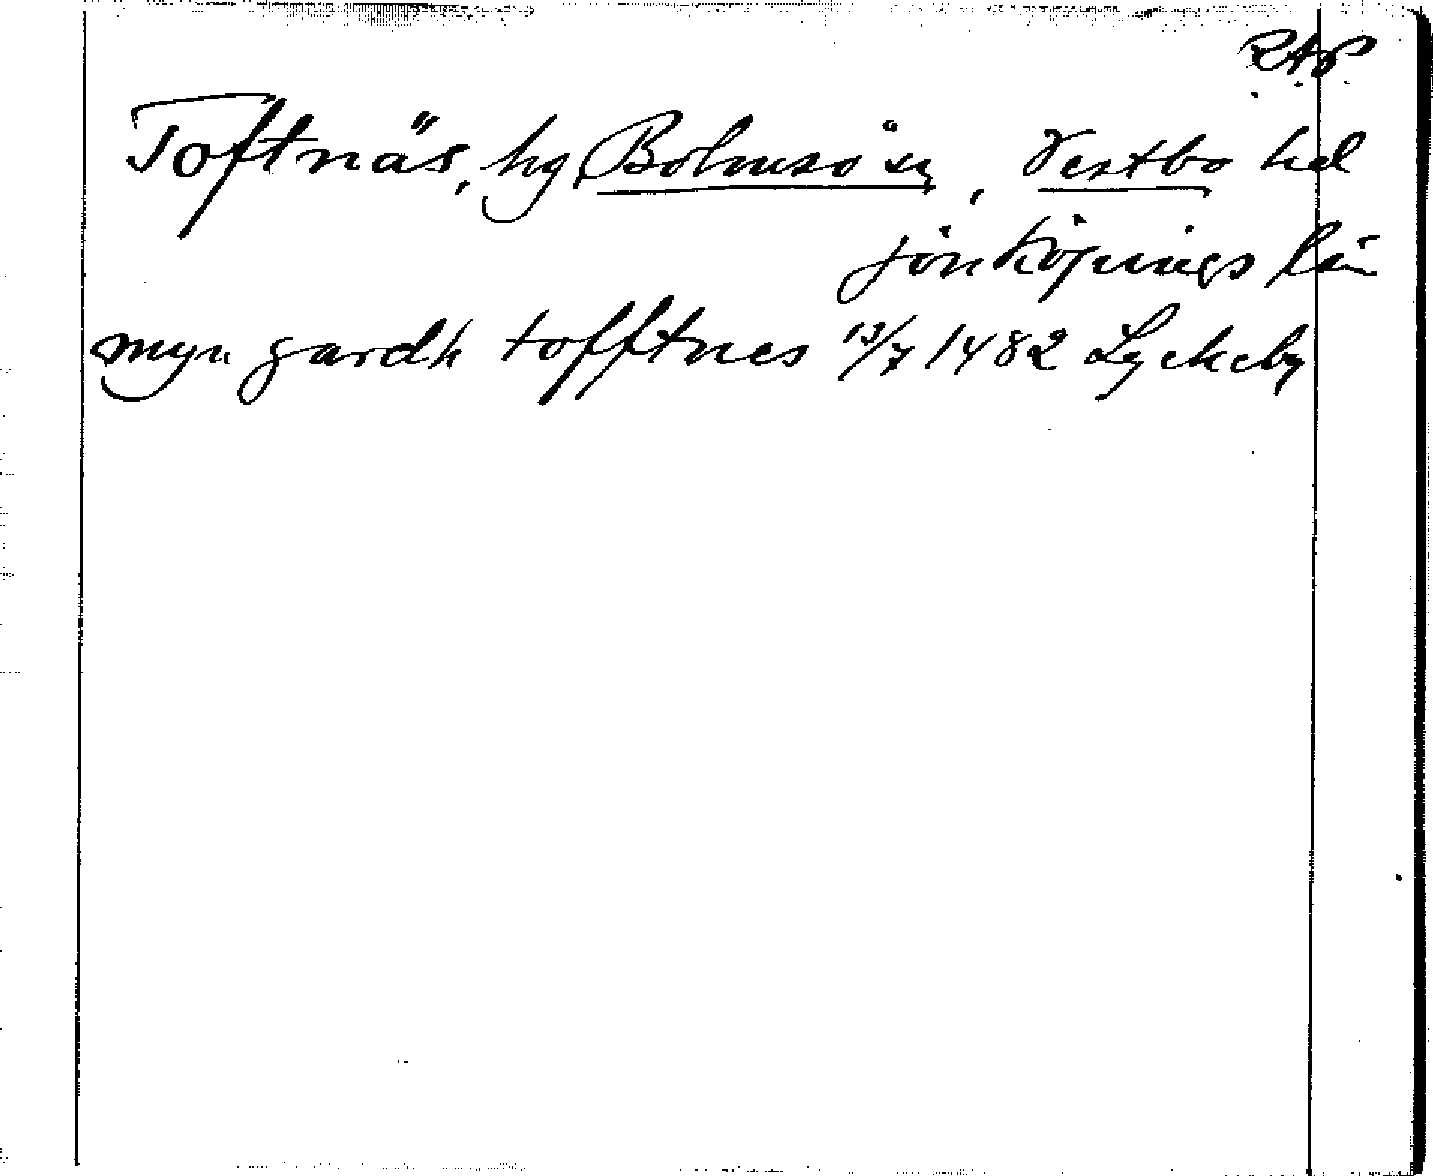 RAP
Toftnäs, hg, Bolmsö sn, Vestbo hd
Jönköpings län
myn gardh tofftnes 13/7 1482 Lyckeby